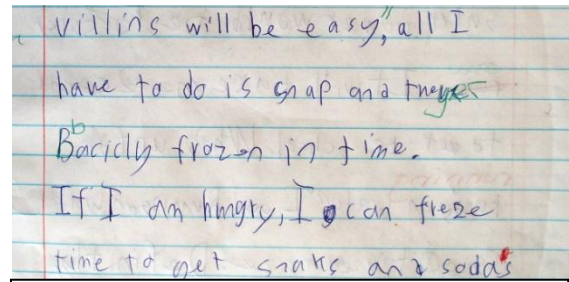 villins will be easy, all I
have to do is snap and they
Bacicly frozen in time.
If I am hungry, I can freze
time to get snaks and soda's